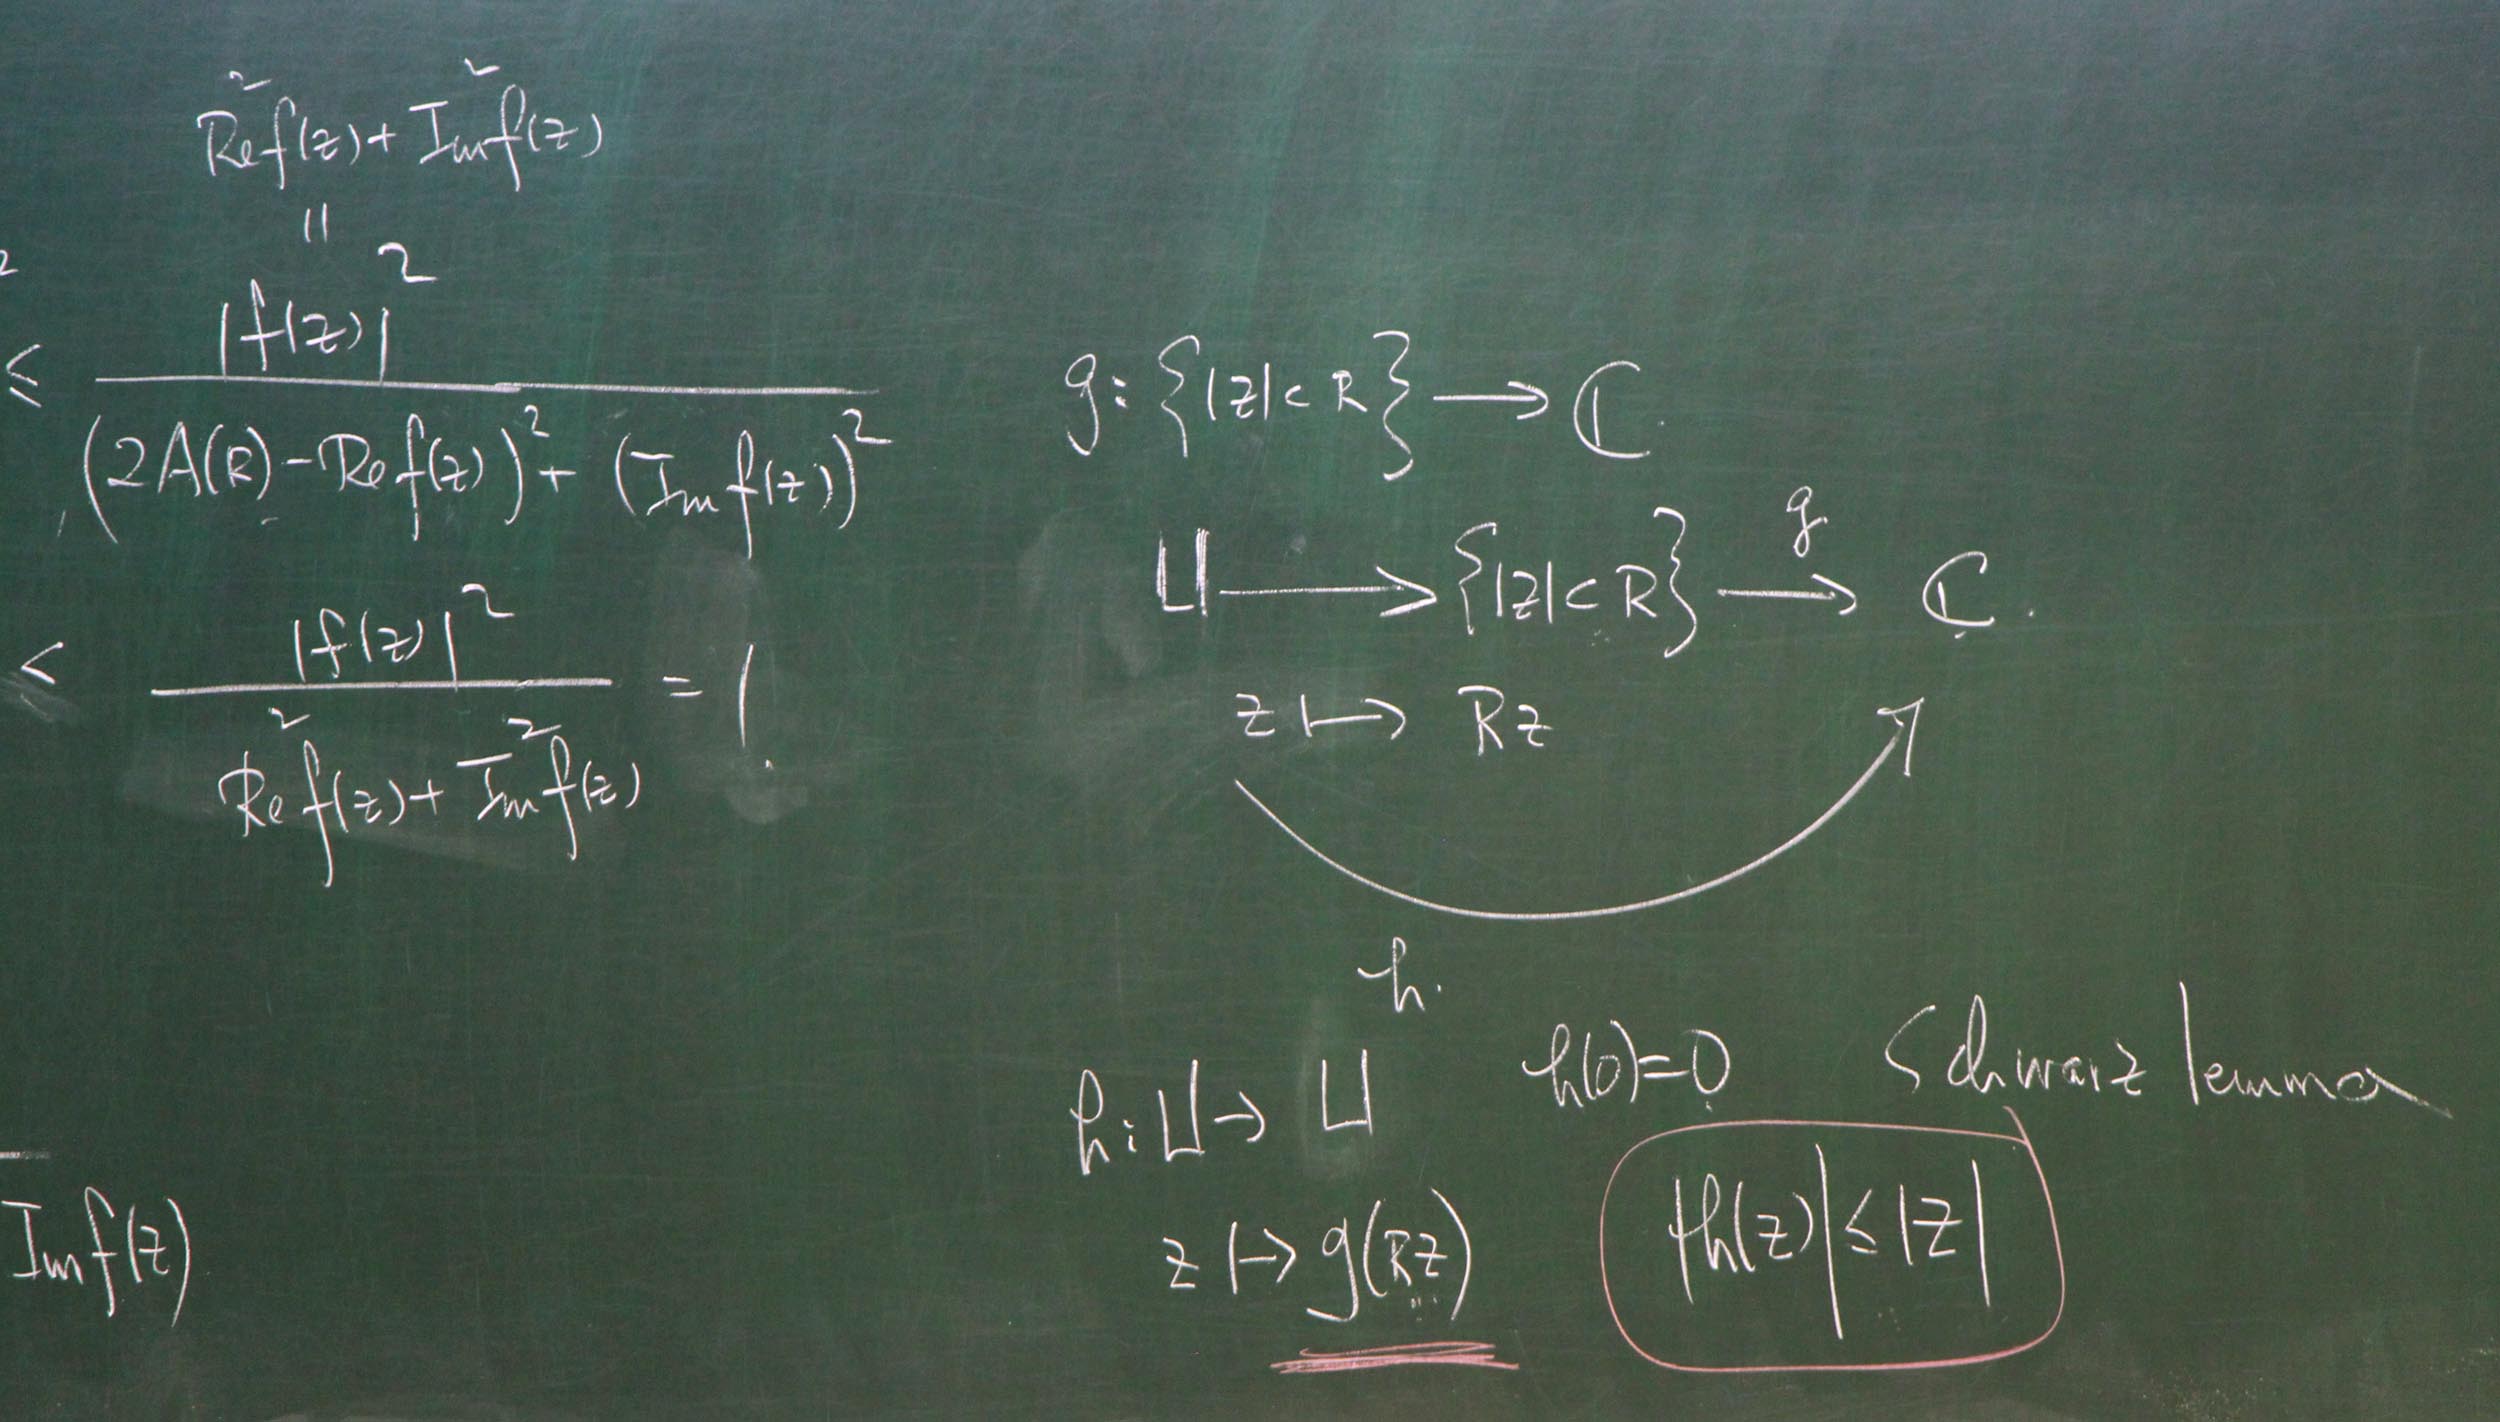 Re²f(z) + Im²f(z)
॥
2
≤ |f(z)|² / ((2A(R) - Re f(z))² + (Im f(z))²)
< |f(z)|² / (Re²f(z) + Im²f(z)) = 1.
Im f(z)
g: {|z| < R} → ℂ.
U → {|z| < R} →g ℂ.
z ↦ Rz
h.
h: U → U h(0)=0 Schwarz lemma
z ↦ g(Rz) |h(z)| ≤ |z|